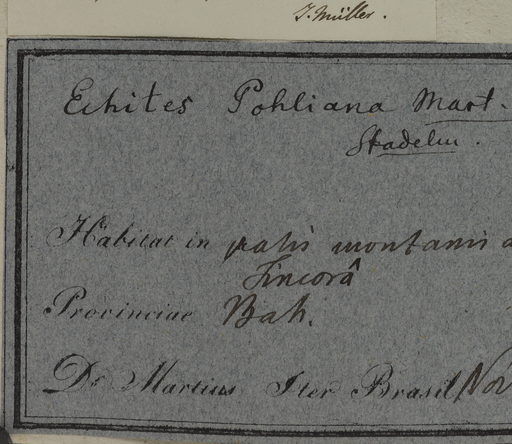 J. Müller.
Echites Pohliana Mart.
Stadelm.
Habitat in pratis montanis
Sincorâ
Provinciae Bah.
Dr. Martius Iter Brasil. Nov